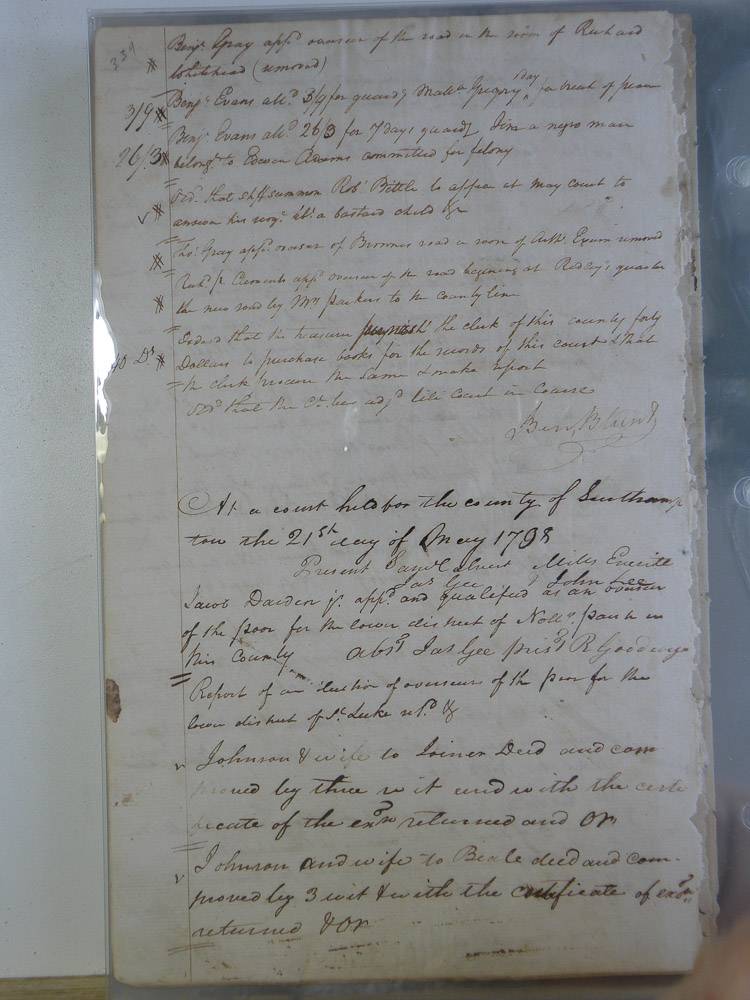 339
Benja. Gray appd. overseer of the road in the room of Richard
Whitehead (removed)
3/9 Benja. Evans alld. 3/9 for guardg Matth. Gregory 1 day for breach of peace
Benja. Evans alld. 26/3 for 7 days guardg a negro man
26/3 belongg. to Edwin Adams committed for felony
Ord. that shff summon Robt. Bittle to appear at May court to
answer his recogce. abt. a bastard child &c
Thos. Gray appd. overseer of Brownes road in room of removed
Clements appd. overseer of the road begining at Ridley's quarter
the new road by Mrs Parkers to the county line
Ordered that the treasurer furnish the clerk of this county forty
40 Ds. Dollars to purchase books for the records of this court & that
the clerk procure the same & make report
Ord. that the Ct. be adjd till Court in Course
Benj. Blunt
At a court held for the county of Southamp
ton the 21st. day of May 1798
Present Saml Calvert Miles Everitt
Jas Gee John Lee
Jacob Darden jr. appd. and qualified as an overseer
of the poor for the lower district of Notto. parish in
this County abst Jas Gee prist R Goodwyn
Report of an election of overseers of the poor for the
lower district of St. Luke retd. &c
Johnson & wife to Joiner Deed and com
proved by three wit and with the certi
ficate of the exon returned and OR
Johnson and wife to Beale deed and com.
proved by 3 wit & with the certificate of exon.
returned & OR